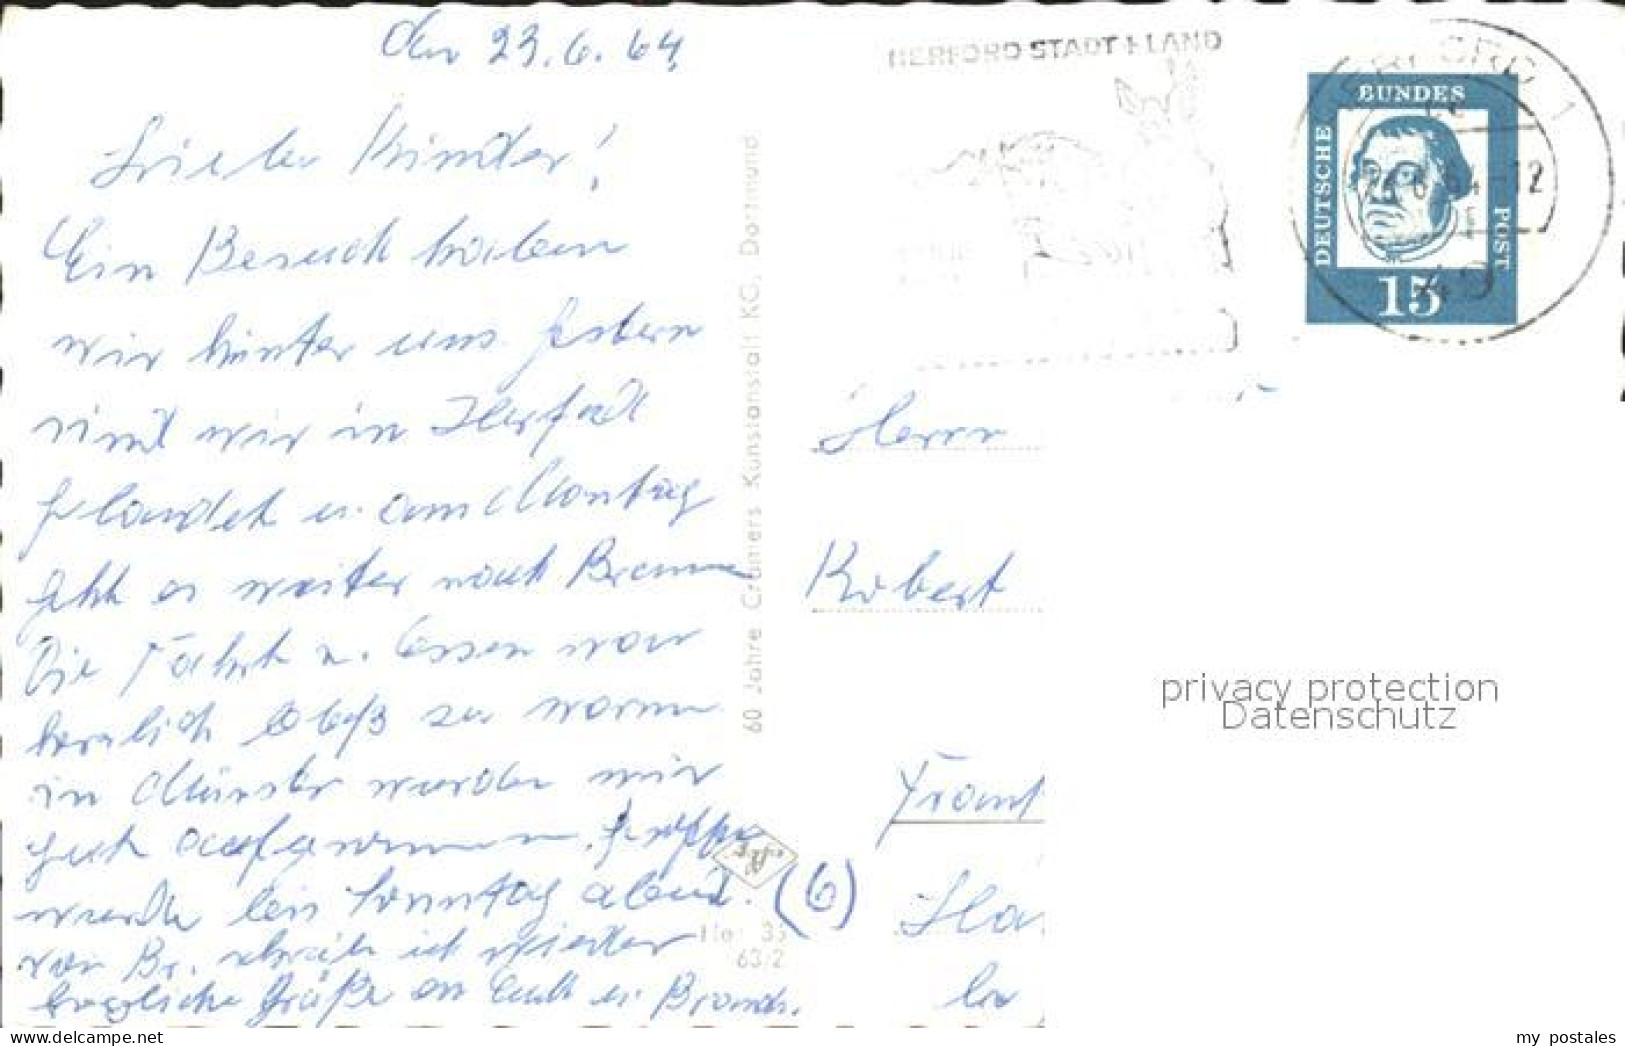 den 23.6.64
HERFORD STADT + LAND
Liebe Kinder!
Ein Besuch haben
wir hinter uns. gestern
sind wir in Herford
gelandet u. am Montag
geht es weiter nach Bremen
Die Fahrt u. Essen war
herrlich bloß zu warm
in Münster wurden wir
gut aufgenommen.
wurde bis Sonntag abend.
von Br. schreibe ich wieder
herzliche Grüße an Euch u.
60 Jahre Cramers Kunstanstalt KG, Dortmund
(6)
35
63/2
HERFORD 1
DEUTSCHE BUNDES POST
15
Herrn
Robert
privacy protection
Datenschutz
my postales